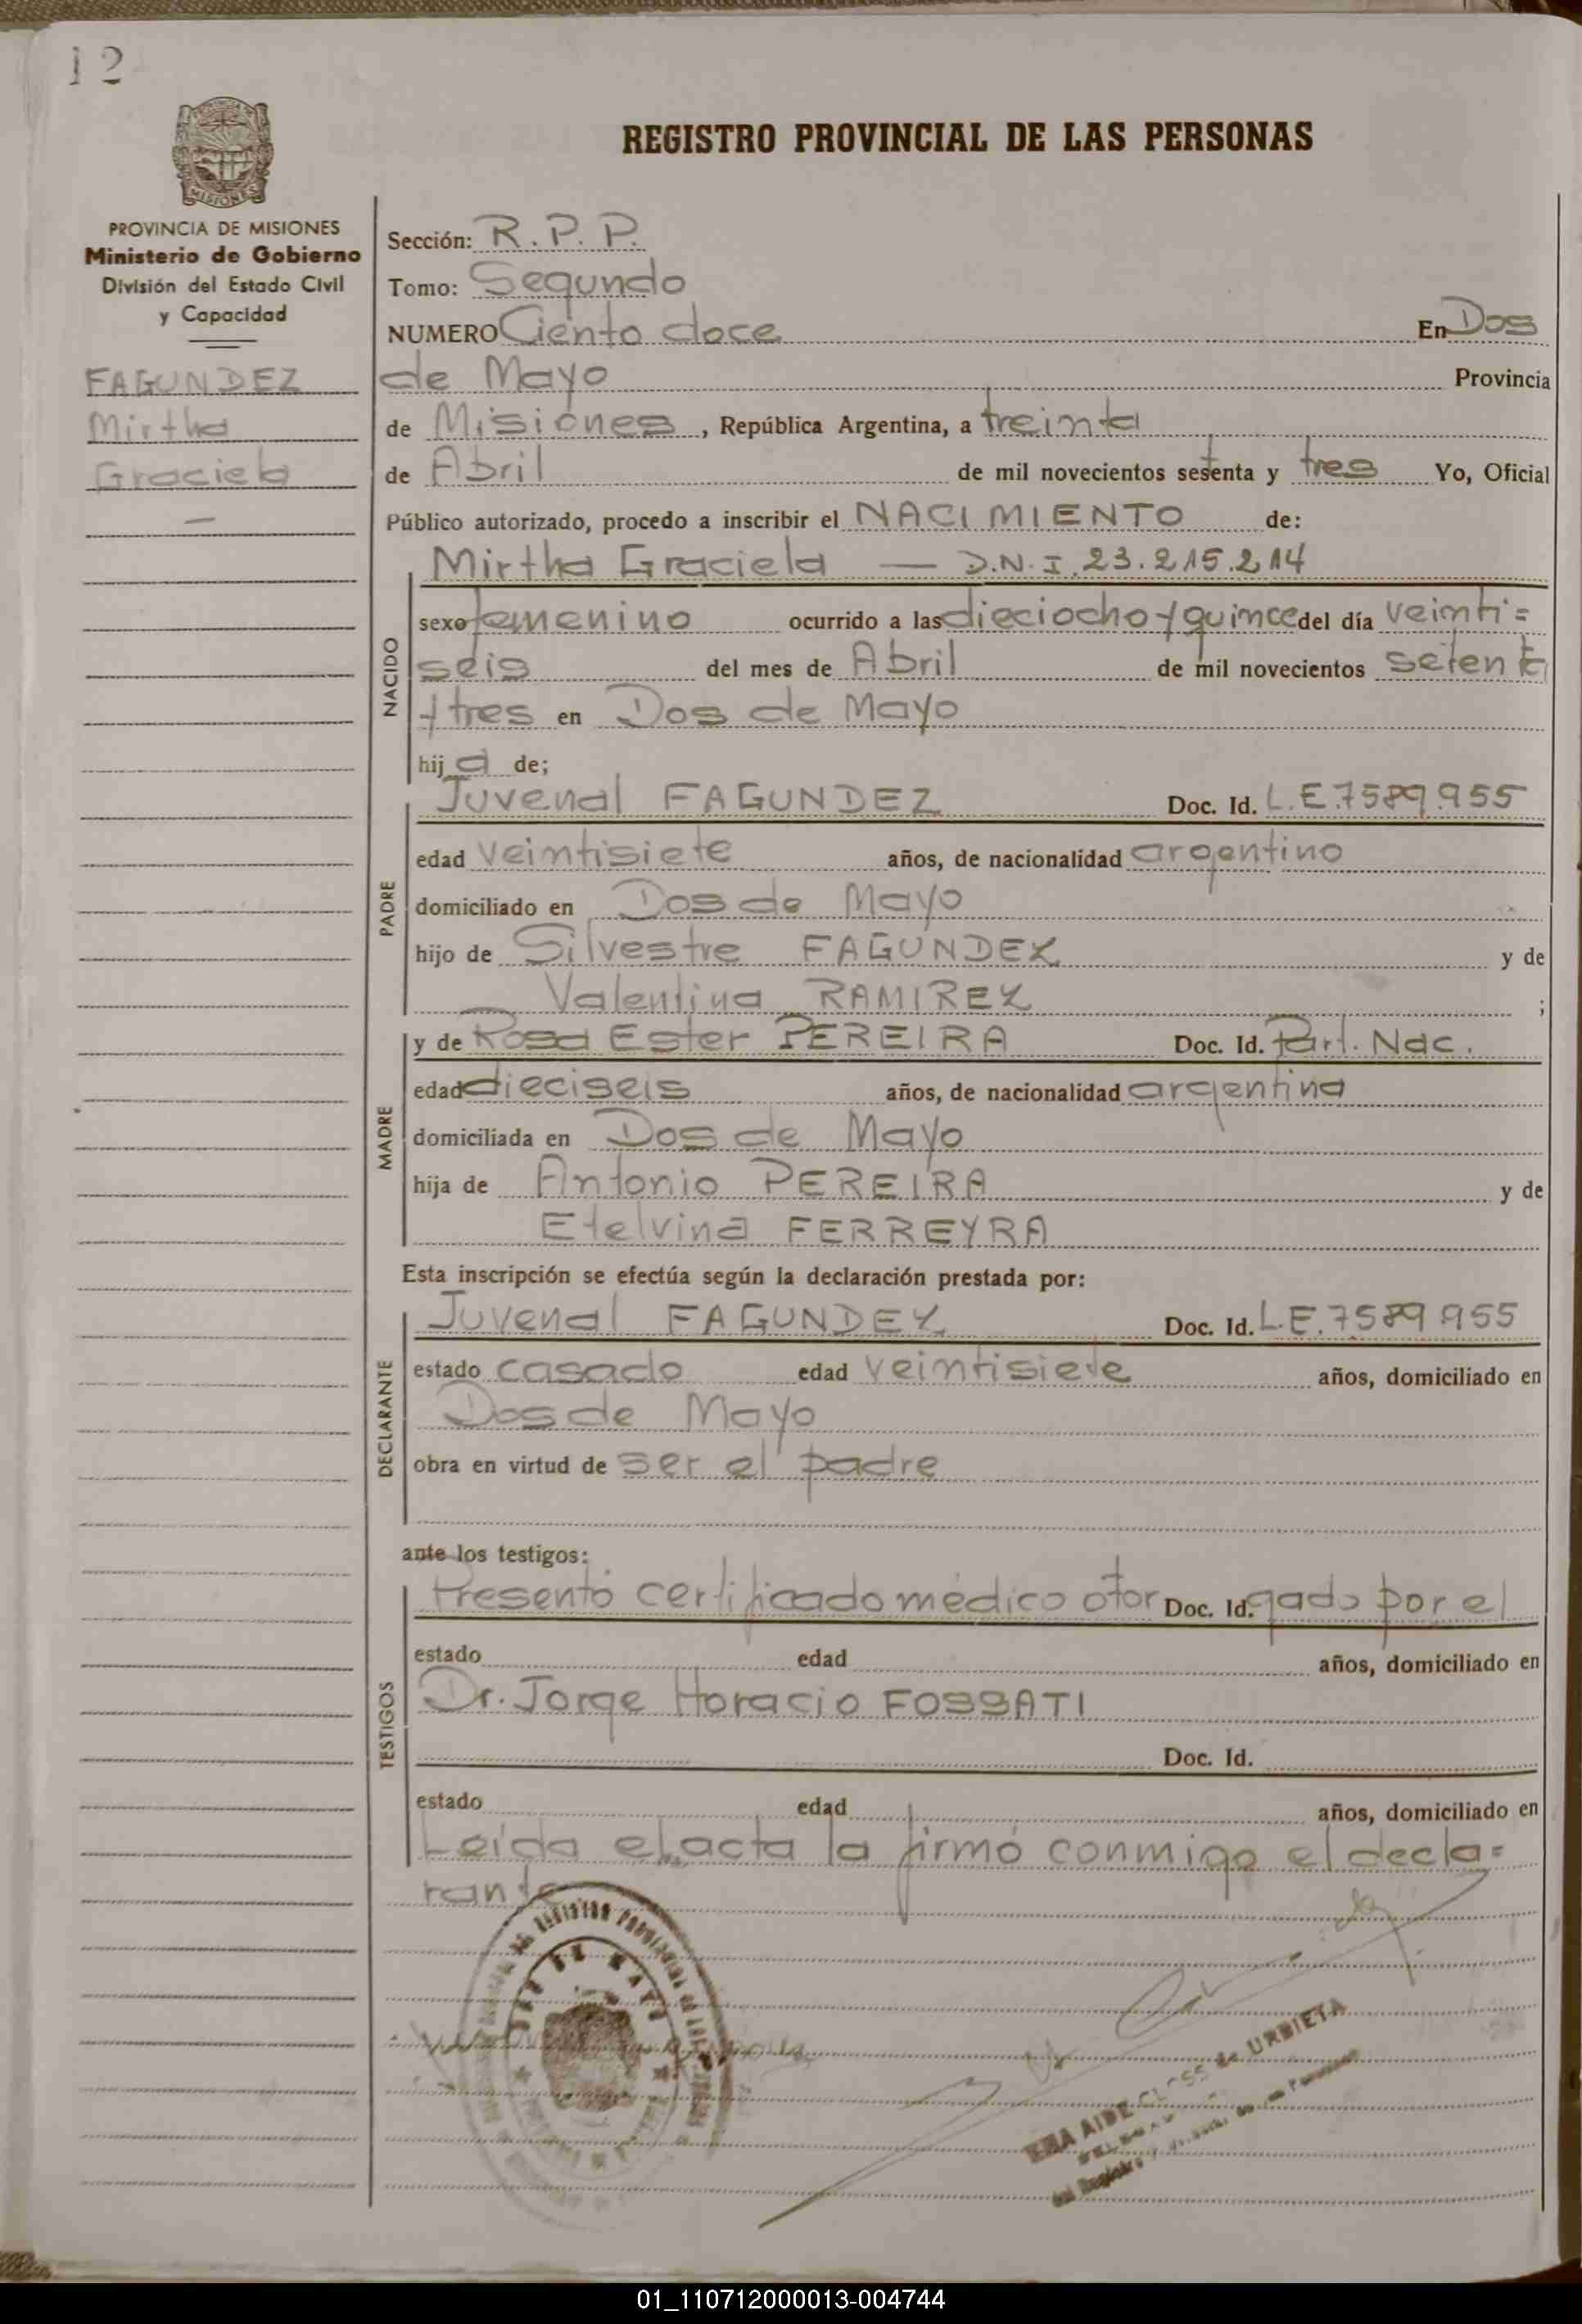 12
PROVINCIA DE MISIONES
Ministerio de Gobierno
División del Estado Civil
y Capacidad
FAGUNDEZ
Mirtha
Graciela
—
REGISTRO PROVINCIAL DE LAS PERSONAS
Sección: R.P.P.
Tomo: Segundo
NUMERO Ciento doce En Dos
de Mayo Provincia
de Misiones, República Argentina, a treinta
de Abril de mil novecientos setenta y tres Yo, Oficial
Público autorizado, procedo a inscribir el NACIMIENTO de:
Mirtha Graciela — D.N.I. 23.215.214
NACIDO
sexo femenino ocurrido a las dieciocho y quince del día veinti=
seis del mes de Abril de mil novecientos setenta
y tres en Dos de Mayo
hija de;
PADRE
Juvenal FAGUNDEZ Doc. Id. L.E.7589.955
edad veintisiete años, de nacionalidad argentino
domiciliado en Dos de Mayo
hijo de Silvestre FAGUNDEZ y de
Valentina RAMIREZ ;
MADRE
y de Rosa Ester PEREIRA Doc. Id. Part. Nac.
edad dieciseis años, de nacionalidad argentina
domiciliada en Dos de Mayo
hija de Antonio PEREIRA y de
Etelvina FERREYRA
Esta inscripción se efectúa según la declaración prestada por:
DECLARANTE
Juvenal FAGUNDEZ Doc. Id. L.E.7589.955
estado casado edad veintisiete años, domiciliado en
Dos de Mayo
obra en virtud de ser el padre
ante los testigos:
TESTIGOS
Presentó certificado médico otor Doc. Id. gado por el
estado edad años, domiciliado en
Dr. Jorge Horacio FOSSATI
Doc. Id.
estado edad años, domiciliado en
Leída el acta la firmó conmigo el decla=
rante
DOS DE MAYO
AIDE CLOSS de URBIETA
01_110712000013-004744